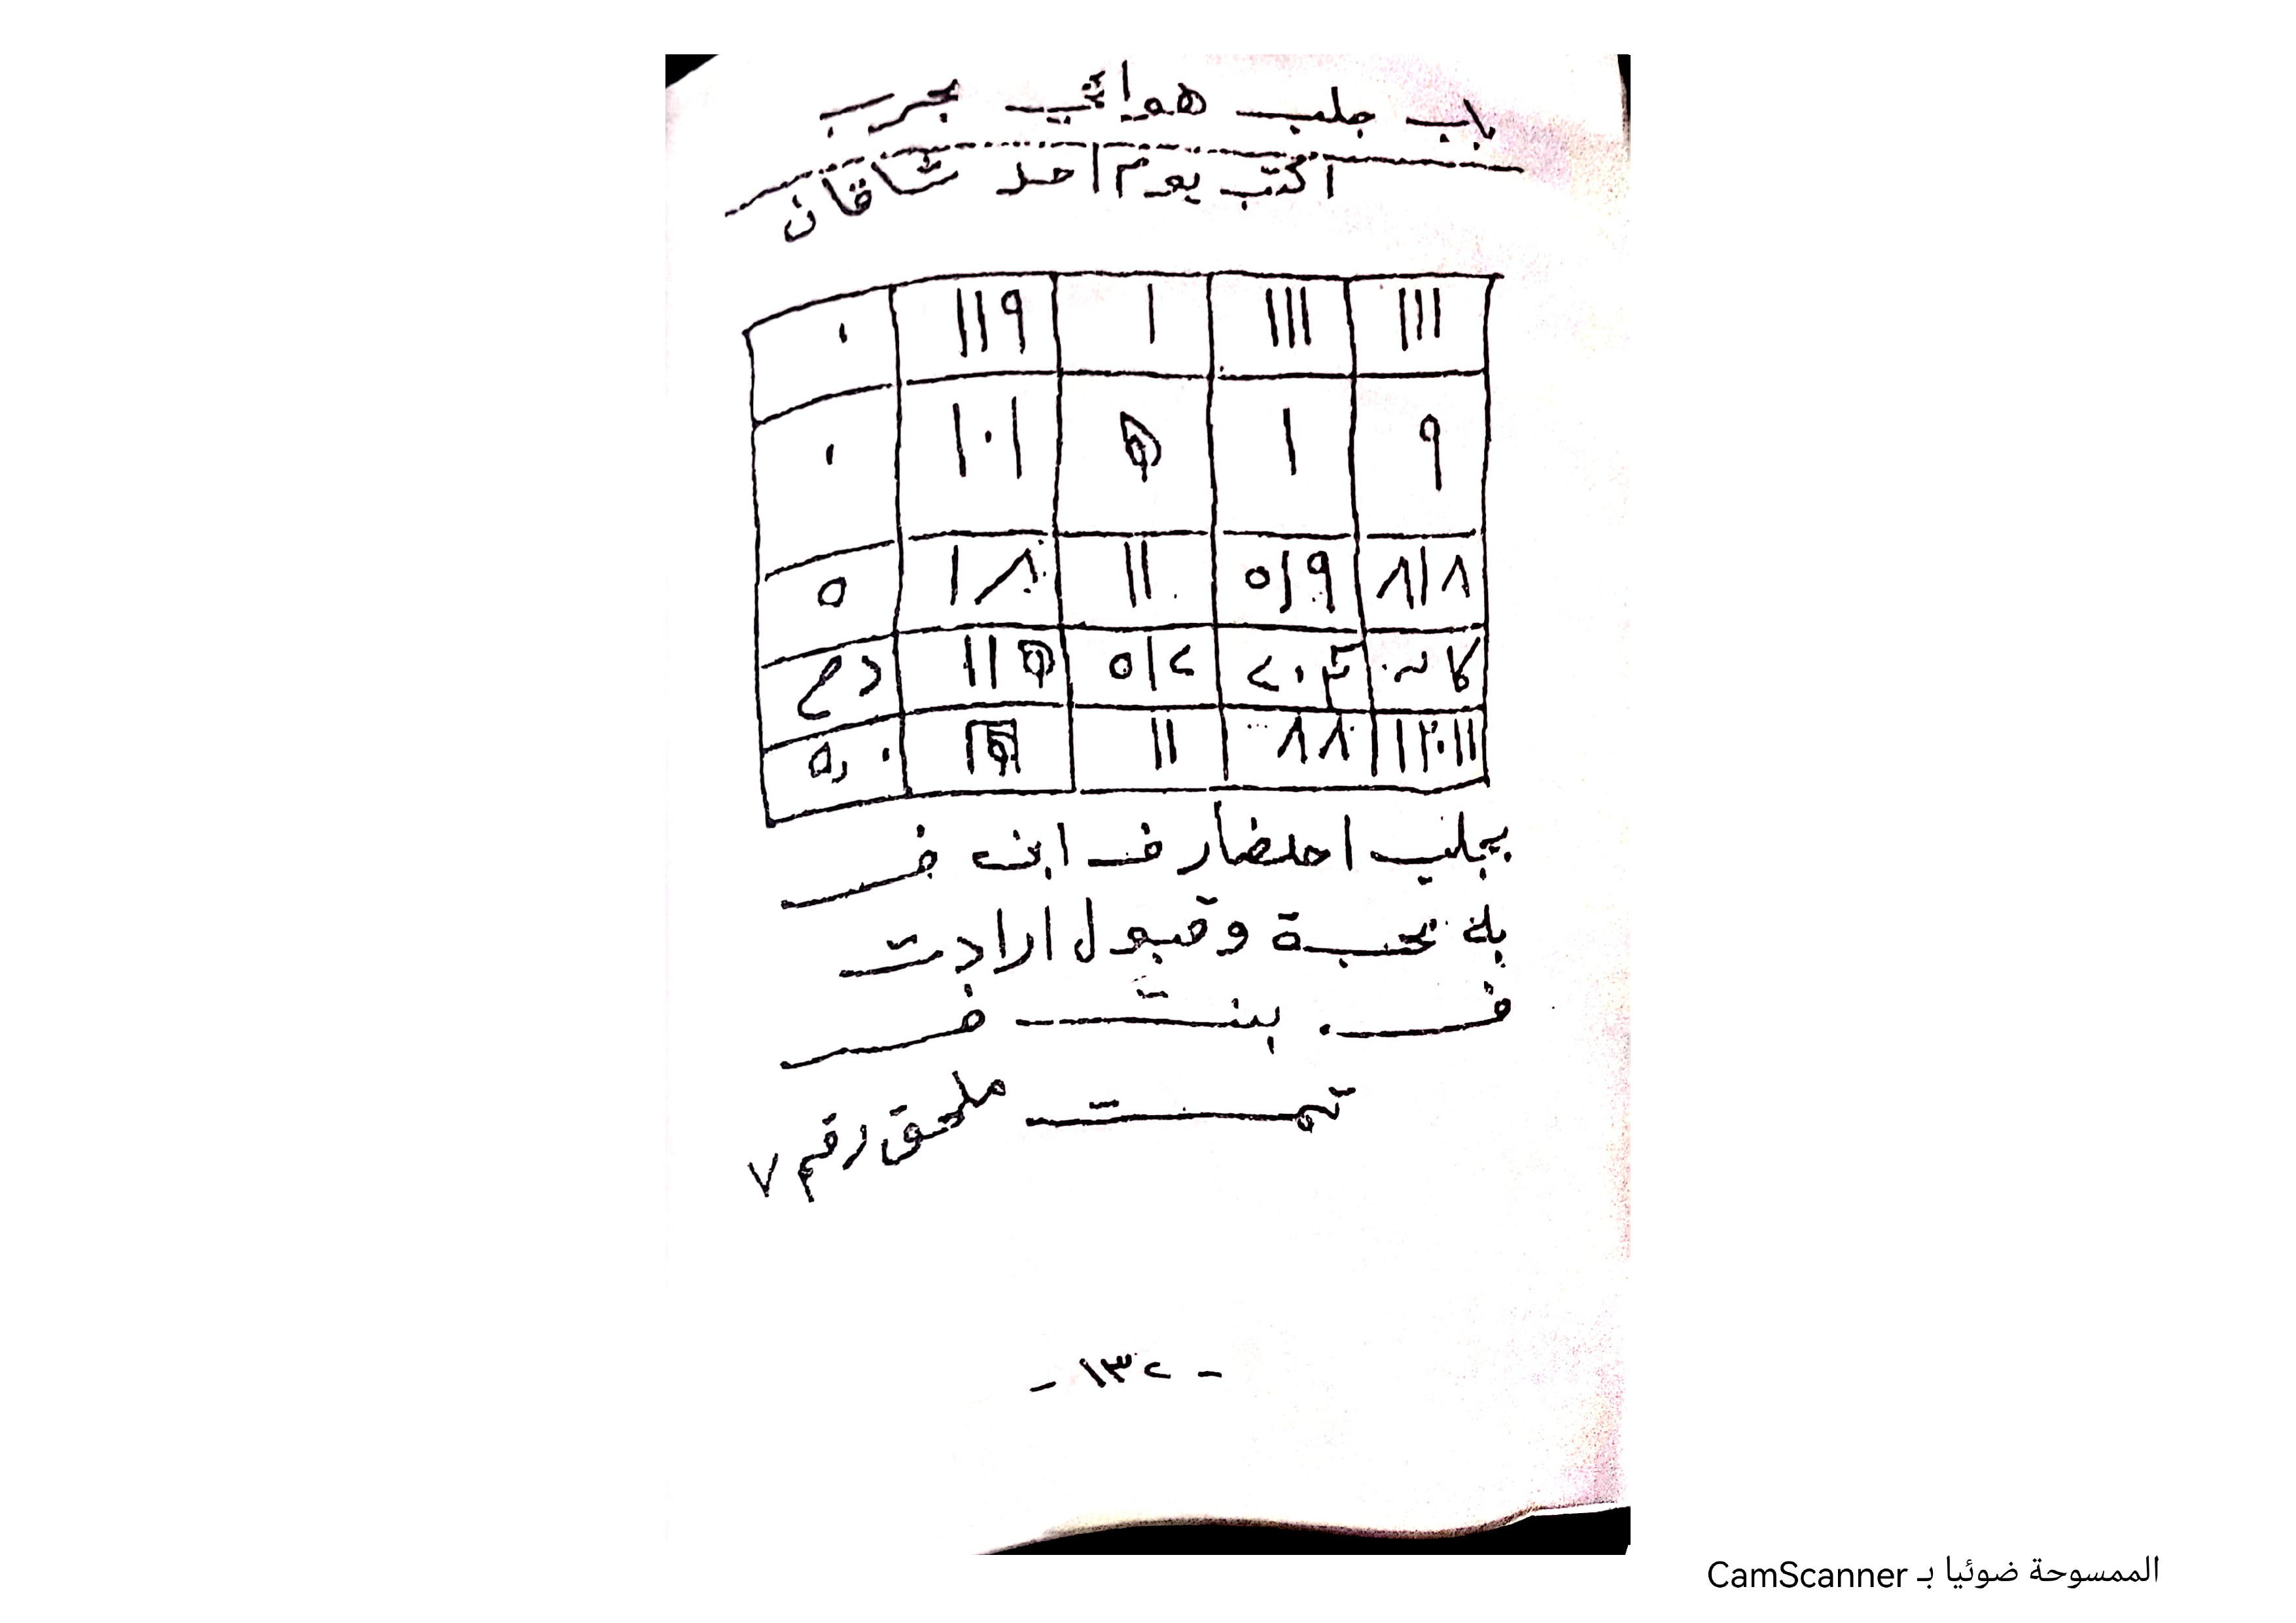 باب جلب هوائي مجرب
اكتب يوم احد
١ ١١٩ ١ ١١١ ١١١
١٠١ ١ ٩
٥ ١٨ ١١ ٥١٩ ٨١٨
دح ١١ ٥١٤
١١ ٨٨
بجلب احضار ف ابن ف
به محبة وقبول ارادت
ف. بنت ف
تمت ملحق رقم ٧
- ١٣٢ -
الممسوحة ضوئيا بـ CamScanner